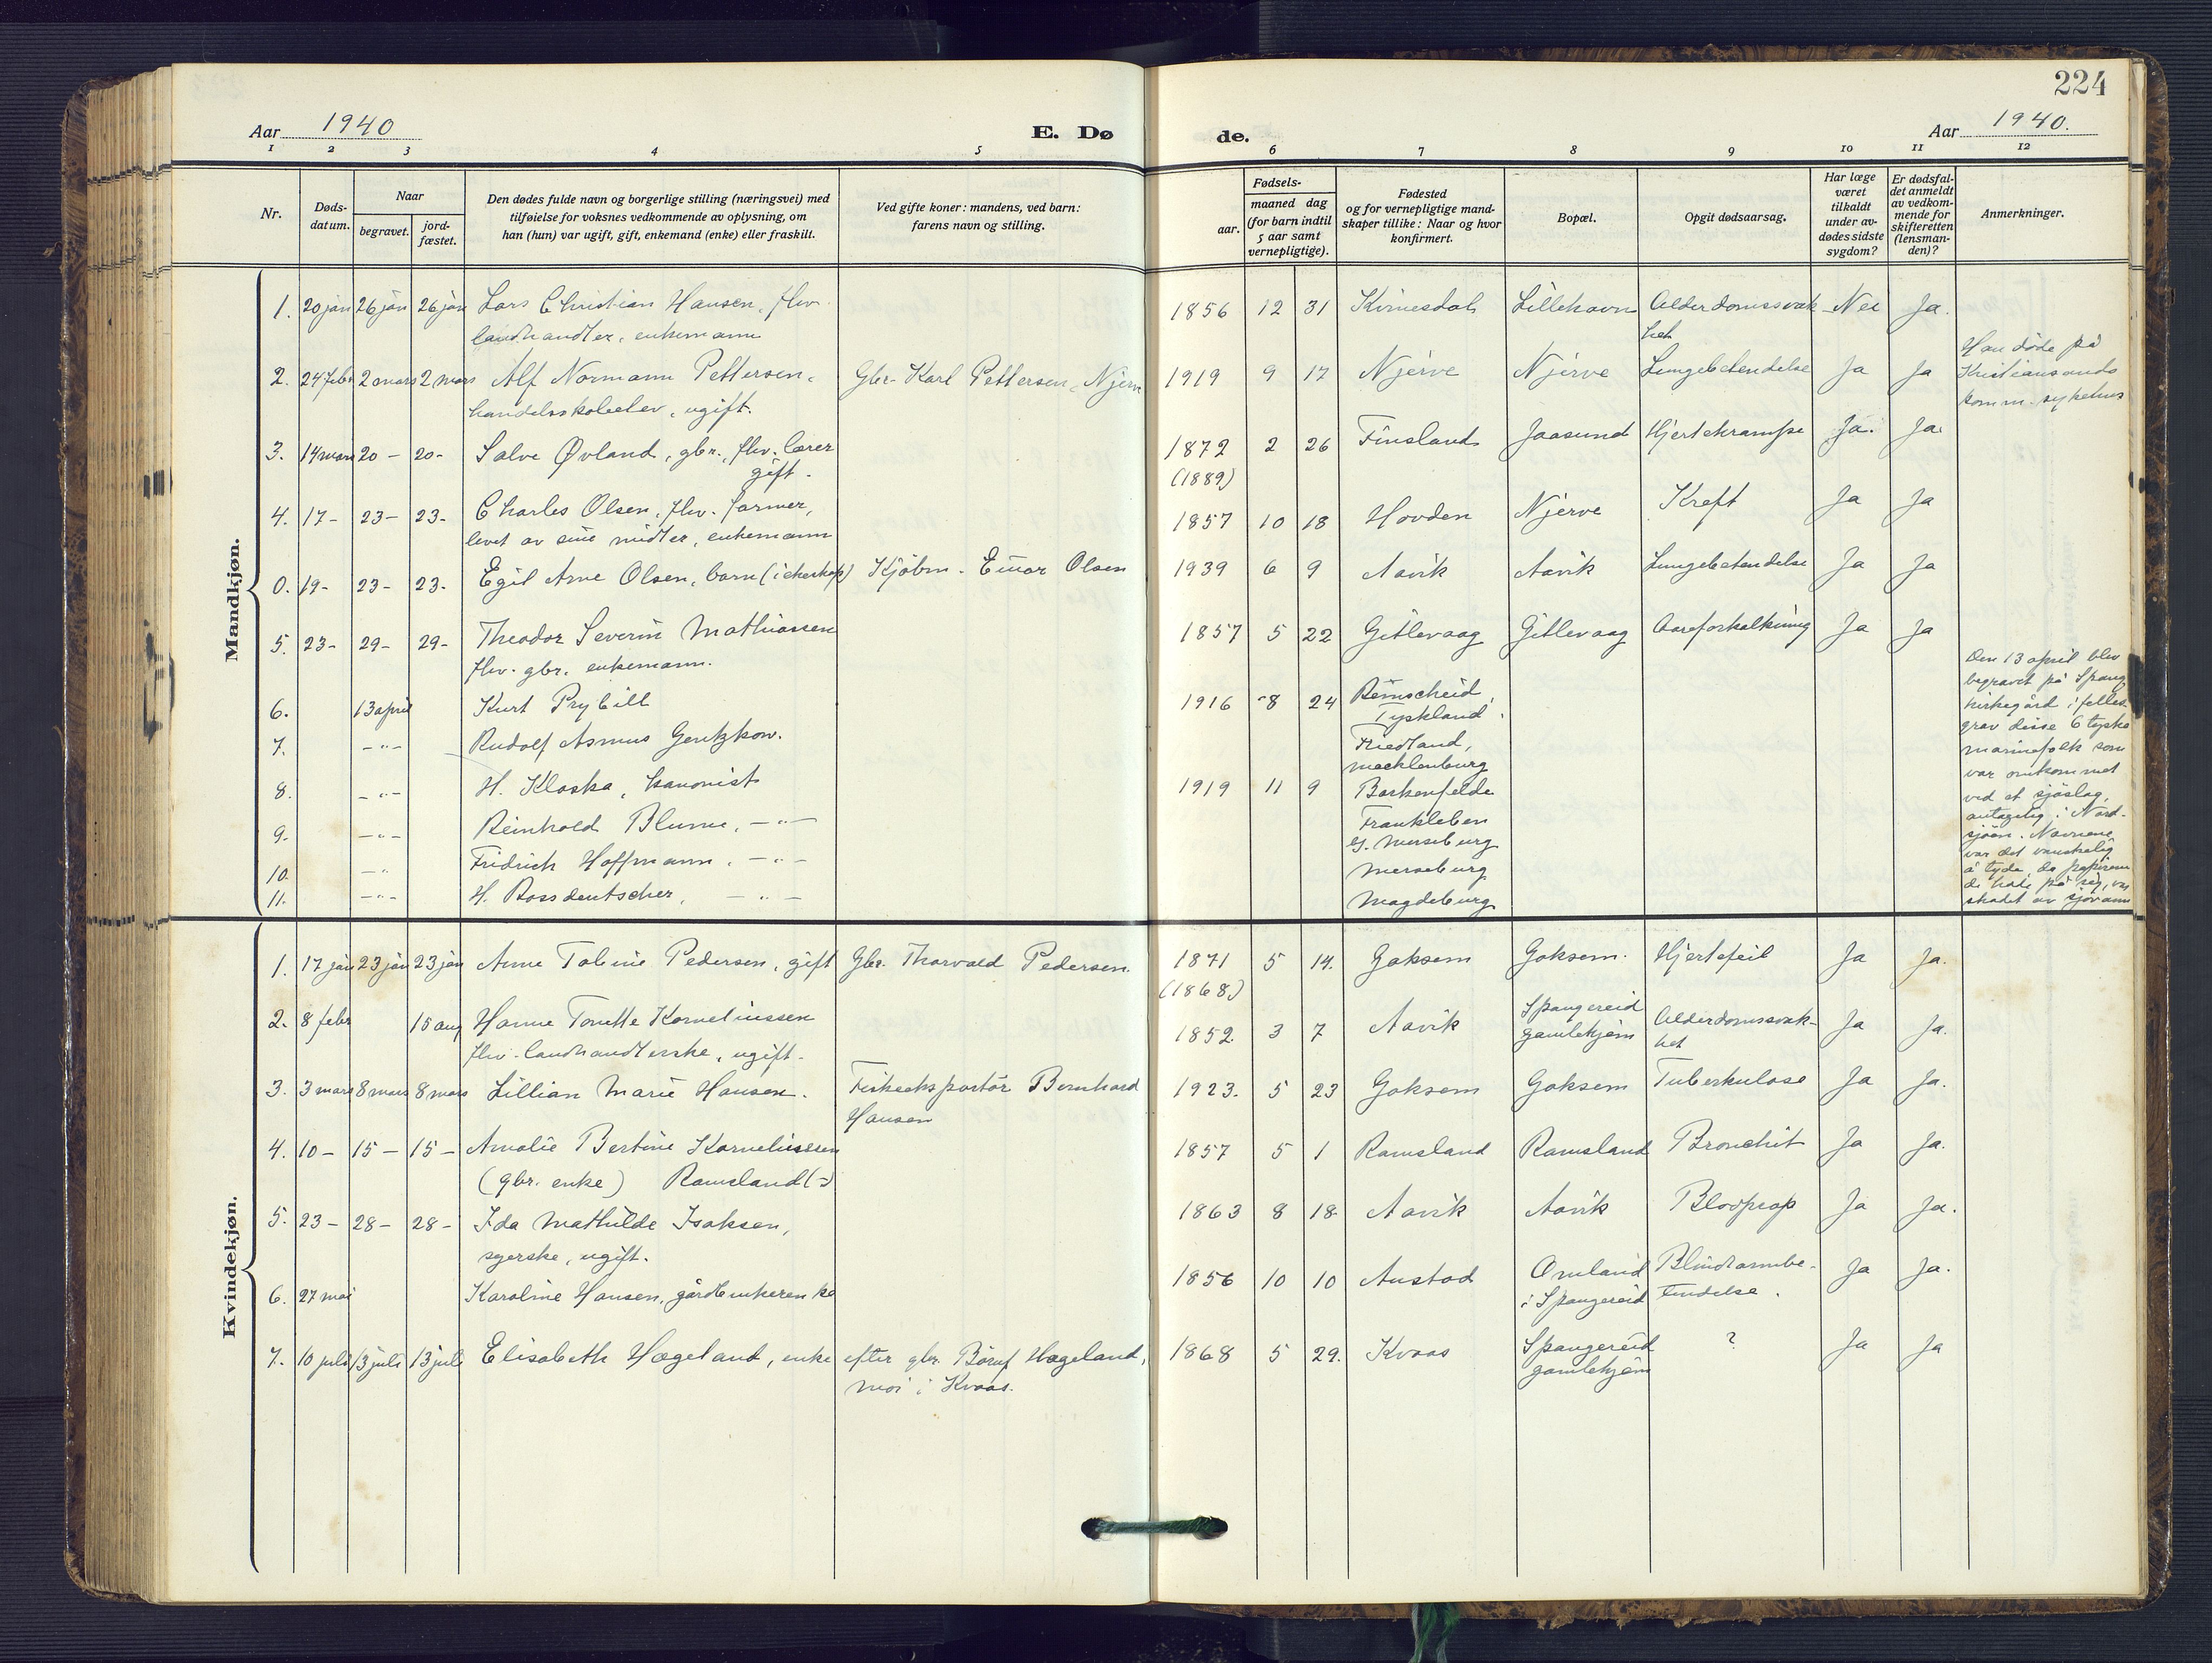 224
Aar 1940
E. Dø
de.
Aar 1940.
1 2 3 4 5 6 7 8 9 10 11 12
Nr.
Døds-
datum.
Naar
begravet.
jord-
fæstet.
Den dødes fulde navn og borgerlige stilling (næringsvei) med
tilføielse for voksnes vedkommende av oplysning, om
han (hun) var ugift, gift, enkemand (enke) eller fraskilt.
Ved gifte koner: mandens, ved barn:
farens navn og stilling.
Fødsels-
aar.
maaned dag
(for barn indtil
5 aar samt
vernepligtige).
Fødested
og for vernepligtige mand-
skaper tillike: Naar og hvor
konfirmert.
Bopæl.
Opgit dødsaarsag.
Har læge
været
tilkaldt
under av-
dødes sidste
sygdom?
Er dødsfal-
det anmeldt
av vedkom-
mende for
skifteretten
(lensman-
den)?
Anmerkninger.
Mandkjøn.
1. 20 jan 26 jan 26 jan Lars Christian Hansen, fhv. 1856 12 31 Kvinesdal Lillehavn Alderdomssvak- Nei Ja.
landhandler, enkemann het
2. 24 febr 2 mars 2 mars Alf Normann Pettersen, Gbr. Karl Pettersen, Njerve 1919 9 17 Njerve Njerve Lungebetendelse Ja Ja
handelsskoleelev, ugift.
Han døde på
Kristiansands
komm. sykehus
3. 14 mars 20 - 20 - Salve Øvland, gbr., fhv. lærer 1872 2 26 Finsland Jaasund Hjertekrampe Ja. Ja.
gift. (1889)
4. 17 - 23 - 23 - Charles Olsen, fhv. farmer, 1857 10 18 Hovden Njerve Kreft Ja Ja
levet av sine midler, enkemann
0. 19 - 23 - 23 - Egil Arne Olsen, barn (i ekteskap) Kjøbm. Einar Olsen 1939 6 9 Aavik Aavik Lungebetendelse Ja Ja
5. 23 - 29 - 29 - Theodor Severin Mathiassen 1857 5 22 Gitlevaag Gitlevaag Aareforkalkning Ja Ja
fhv. gbr. enkemann.
6. 13 april Kurt Prybill 1916 8 24 Remscheid,
Tyskland.
7. -"- Rudolf Asmus Gentzkow. Friedland,
Mecklenburg
8. -"- H. Kloska, kanonist 1919 11 9 Barkenfelde
9. -"- Reinhold Blume, -"- Frankleben
G. Merseburg
10. -"- Fridrich Hoffmann, -"- Merseburg
11. -"- H. Rossdeutscher, -"- Magdeburg
Den 13 april blev
begravet på Spang.
kirkegård i felles-
grav disse 6 tyske
marinefolk som
var omkommet
ved et sjøslag,
antagelig i Nord-
sjøen. Navnene
var det vanskelig
å tyde, da papirene
de hade på sig, var
skadet av sjøvann
Kvindekjøn.
1. 17 jan 23 jan 23 jan Anne Toline Pedersen, gift Gbr. Thorvald Pedersen. 1871 5 14. Goksem Goksem. Hjertefeil Ja Ja.
(1868)
2. 8 febr 15 aug Hanne Tonette Korneliussen 1852. 3 7 Aavik Spangereid Alderdomssvak- Ja Ja.
fhv. landhandlerske, ugift. gamlehjem het
3. 3 mars 8 mars 8 mars Lillian Marie Hansen. Fiskeeksportør Bernhard 1923. 5 23 Goksem Goksem Tuberkulose Ja Ja.
Hansen
4. 10 - 15 - 15 - Amalie Bertine Korneliussen 1857 5 1 Ramsland Ramsland Bronchit Ja Ja.
(gbr. enke) Ramsland
5. 23 - 28 - 28 - Ida Mathilde Isaksen, 1863 8 18. Aavik Aavik Blodprop Ja Ja.
syerske, ugift.
6. 27 mai Karoline Hansen, gårdbrukerenke 1856 10 10 Austad Omland Blindtarmbe- Ja Ja.
i Spangereid tendelse.
7. 10 juli 13 juli 13 juli Elisabeth Hægeland, enke efter gbr. Hægeland, 1868 5 29. Kvaas Spangereid ? Ja Ja
Moi i Kvaas. gamlehjem